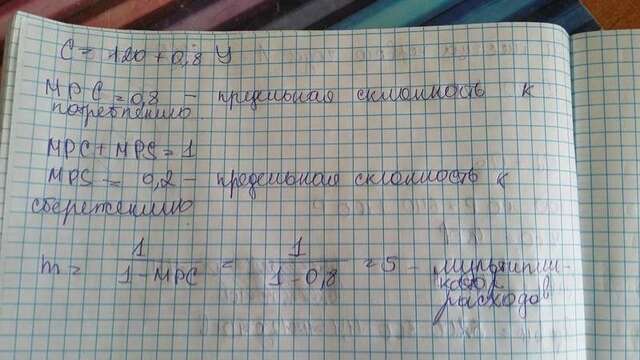 C = 120 + 0,8 Y
MPC = 0,8 – предельная склонность к
потреблению
MPC + MPS = 1
MPS = 0,2 – предельная склонность к
сбережению
m = 1/(1-MPC) = 1/(1-0,8) = 5 – мультипли-
катор
расходов